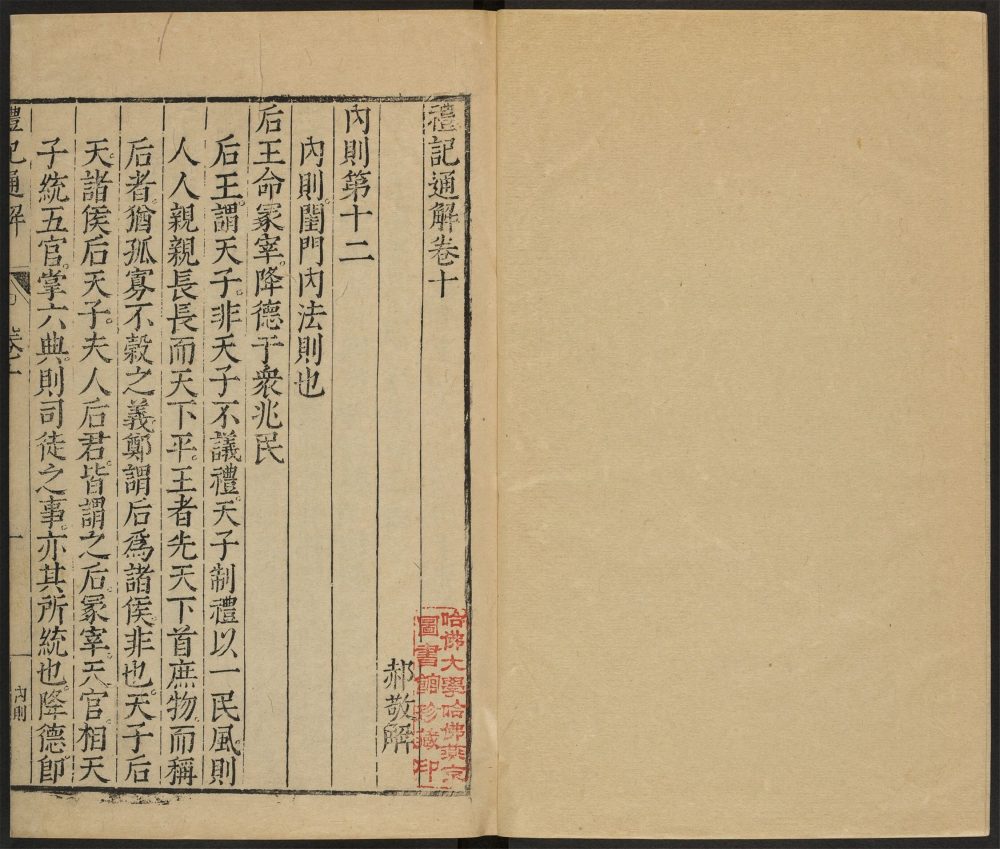 禮記通解卷十
郝敬解
內則第十二
內則。閨門內法則也
后王命冢宰。降德于衆兆民
后王。謂天子。非天子不議禮。天子制禮以一民風。則
人人親親長長而天下平。王者先天下首庶物。而稱
后者。猶孤寡不穀之義。鄭謂后爲諸侯非也。天子后
天。諸侯后天子。夫人后君。皆謂之后。冢宰。天官。相天
子統五官。掌六典。則司徒之事。亦其所統也。降德。卽
禮記通解
卷十
一
內則
哈佛大學哈佛燕京
圖書館珍藏印